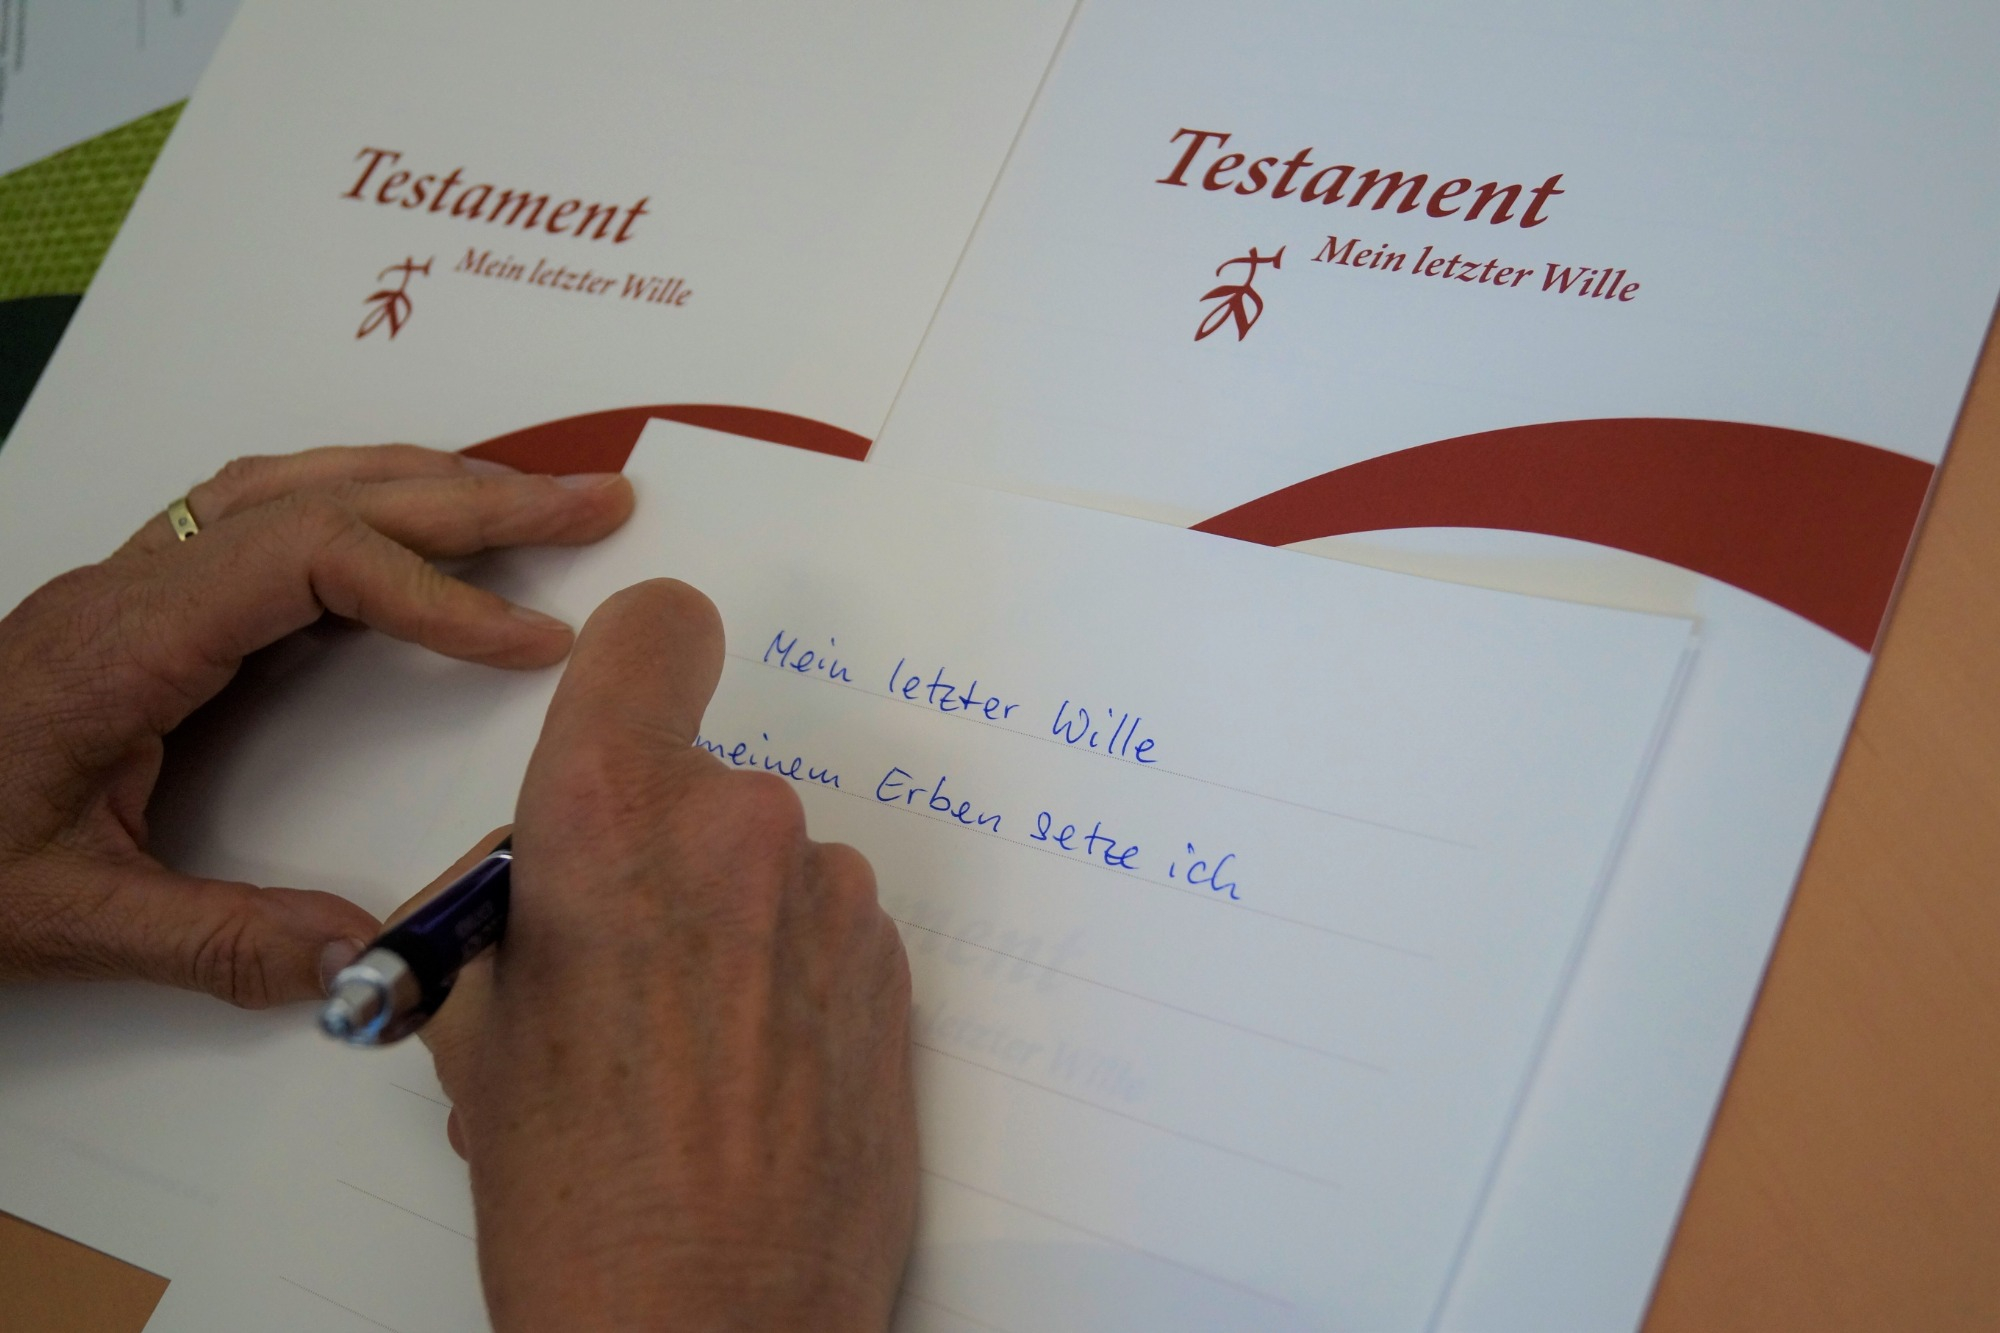 Testament
Mein letzter Wille
Testament
Mein letzter Wille
Mein letzter Wille
meinem Erben setze ich
ment
letzter Wille